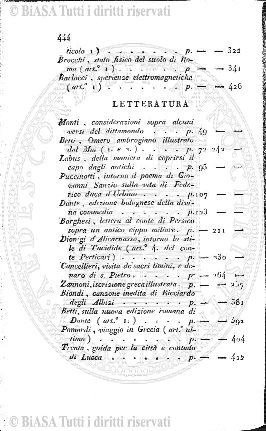 444
ticolo 1) . . . . . . . . p. — — 322
Brocchi, stato fisico del suolo di Ro-
ma (art.° 1.) . . . . . . p. — — 341
Barlocci, sperienze elettromagnetiche
(art.° 1) . . . . . . . . p. — — 426
LETTERATURA
Monti, considerazioni sopra alcuni
versi del dittamondo . . . p. 49 — —
Betti, Omero ambrogiano illustrato
dal Mai (1. e 2.) . . . . p. 72 242 —
Labus, della maniera di coprirsi il
capo dagli antichi . . . . p. 95
Puccinotti, intorno il poema di Gio-
vanni Sanzio sulla vita di Fede-
rico duca d'Urbino . . . . p. 107
Dante, edizione bolognese della divi-
na commedia . . . . . . p. 123 — —
Borghesi, lettera al conte di Persico
sopra un antico cippo militare. p. — 211
Dionigi d'Alicarnasso, intorno lo sti-
le di Tucidide (art.° 4. del con-
te Perticari) . . . . . . p. — 230 —
Cancellieri, visita de sacri limini, e do-
naro di s. Pietro . . . . . p. — 264 —
Zannoni, iscrizione greca illustrata . p. — — 357
Biondi, canzone inedita di Ricciardo
degli Albizi . . . . . . p. — — 361
Betti, sulla nuova edizione romana di
Dante (art.° 1.) . . . . . p. — — 392
Pomardi, viaggio in Grecia (art.° ul-
timo) . . . . . . . . p. — — 404
Trenta, guida per la città e contado
di Lucca . . . . . . . p. — — 422